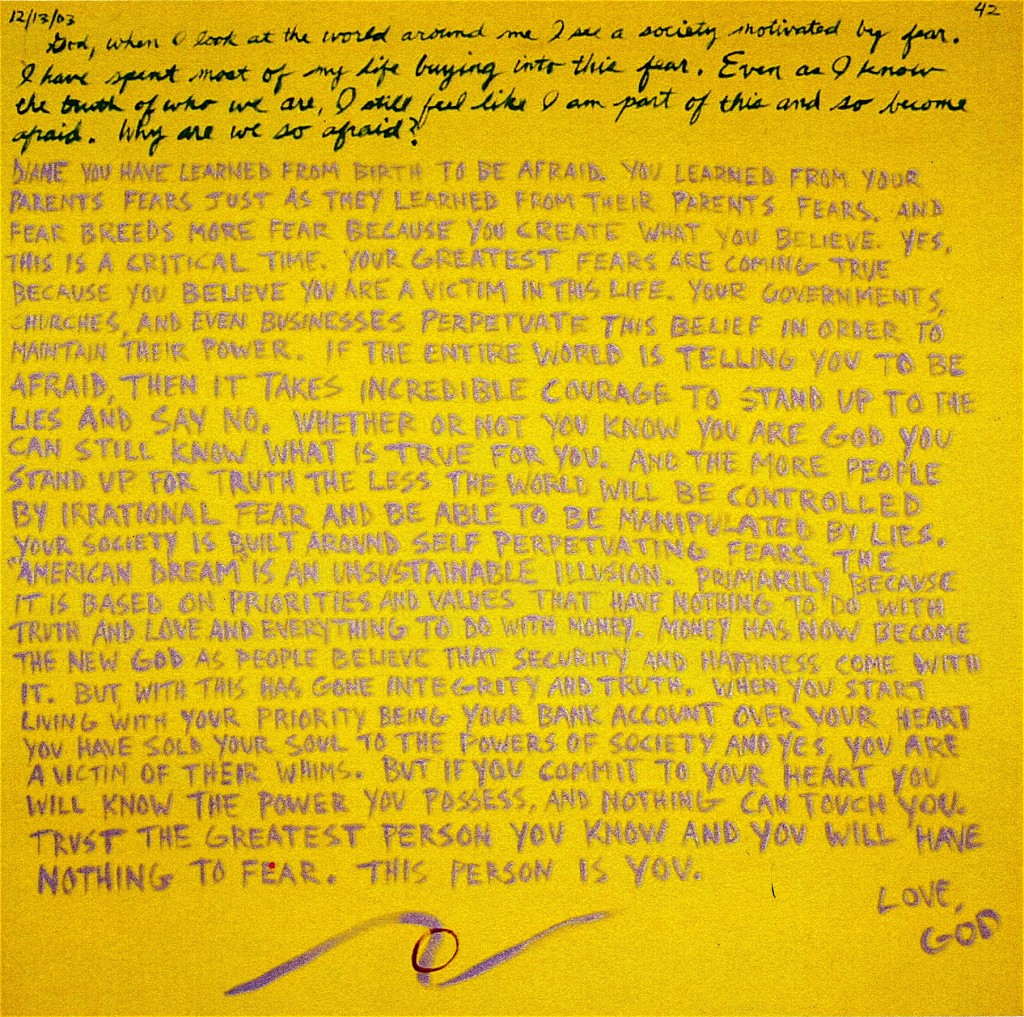 12/13/03 42
God, when I look at the world around me I see a society motivated by fear.
I have spent most of my life buying into this fear. Even as I know
the truth of who we are, I still feel like I am part of this and so become
afraid. Why are we so afraid?
DIANE YOU HAVE LEARNED FROM BIRTH TO BE AFRAID. YOU LEARNED FROM YOUR
PARENTS FEARS JUST AS THEY LEARNED FROM THEIR PARENTS FEARS. AND
FEAR BREEDS MORE FEAR BECAUSE YOU CREATE WHAT YOU BELIEVE. YES,
THIS IS A CRITICAL TIME. YOUR GREATEST FEARS ARE COMING TRUE
BECAUSE YOU BELIEVE YOU ARE A VICTIM IN THIS LIFE. YOUR GOVERNMENTS,
CHURCHES, AND EVEN BUSINESSES PERPETUATE THIS BELIEF IN ORDER TO
MAINTAIN THEIR POWER. IF THE ENTIRE WORLD IS TELLING YOU TO BE
AFRAID, THEN IT TAKES INCREDIBLE COURAGE TO STAND UP TO THE
LIES AND SAY NO. WHETHER OR NOT YOU KNOW YOU ARE GOD YOU
CAN STILL KNOW WHAT IS TRUE FOR YOU. AND THE MORE PEOPLE
STAND UP FOR TRUTH THE LESS THE WORLD WILL BE CONTROLLED
BY IRRATIONAL FEAR AND BE ABLE TO BE MANIPULATED BY LIES.
YOUR SOCIETY IS BUILT AROUND SELF PERPETUATING FEARS. THE
"AMERICAN DREAM" IS AN UNSUSTAINABLE ILLUSION. PRIMARILY BECAUSE
IT IS BASED ON PRIORITIES AND VALUES THAT HAVE NOTHING TO DO WITH
TRUTH AND LOVE AND EVERYTHING TO DO WITH MONEY. MONEY HAS NOW BECOME
THE NEW GOD AS PEOPLE BELIEVE THAT SECURITY AND HAPPINESS COME WITH
IT. BUT WITH THIS HAS GONE INTEGRITY AND TRUTH. WHEN YOU START
LIVING WITH YOUR PRIORITY BEING YOUR BANK ACCOUNT OVER YOUR HEART
YOU HAVE SOLD YOUR SOUL TO THE POWERS OF SOCIETY AND YES, YOU ARE
A VICTIM OF THEIR WHIMS. BUT IF YOU COMMIT TO YOUR HEART YOU
WILL KNOW THE POWER YOU POSSESS, AND NOTHING CAN TOUCH YOU.
TRUST THE GREATEST PERSON YOU KNOW AND YOU WILL HAVE
NOTHING TO FEAR. THIS PERSON IS YOU.
LOVE,
GOD